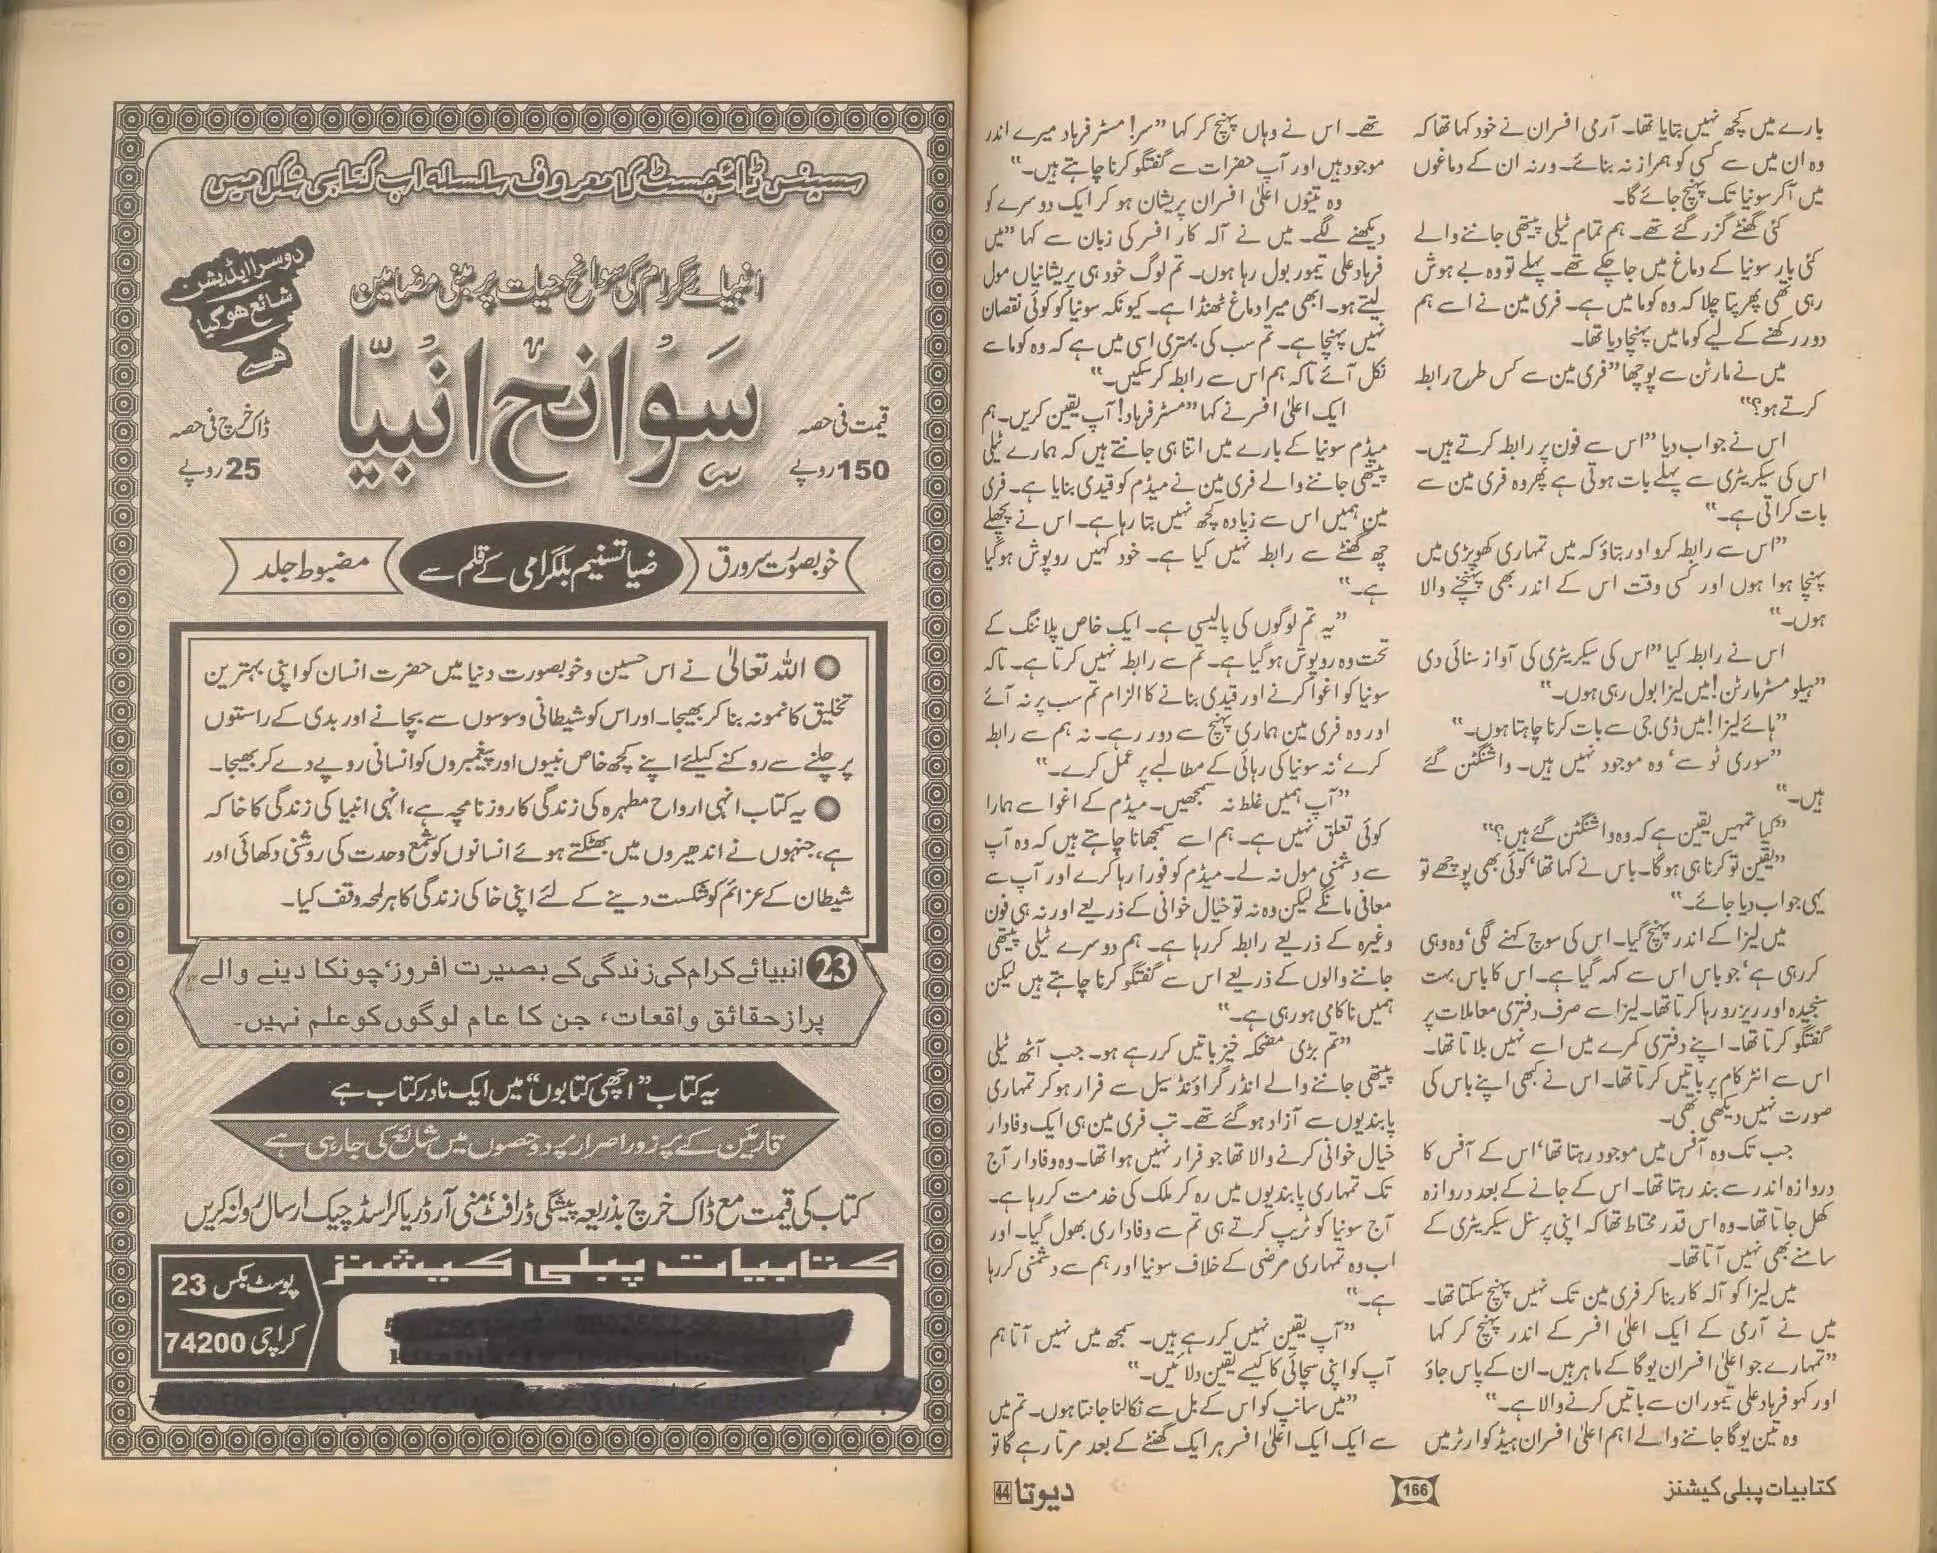 بارے میں کچھ نہیں بتایا تھا۔ آرمی افسران نے خود کہا تھا کہ
وہ ان میں سے کسی کو ہمراز نہ بنائے۔ ورنہ ان کے دماغوں
میں آکر سونیا تک پہنچ جائے گا۔
کئی گھنٹے گزر گئے تھے۔ ہم تمام ٹیلی پیتھی جاننے والے
کئی بار سونیا کے دماغ میں جا چکے تھے۔ پہلے تو وہ بے ہوش
رہی تھی پھر پتا چلا کہ وہ کوما میں ہے۔ فری مین نے اسے ہم سے
دور رکھنے کے لیے کوما میں پہنچا دیا تھا۔
میں نے مارٹن سے پوچھا ”فری مین سے کس طرح رابطہ
کرتے ہو؟“
اس نے جواب دیا ”اس سے فون پر رابطہ کرتے ہیں۔
اس کی سیکریٹری سے پہلے بات ہوتی ہے پھر وہ فری مین سے
بات کراتی ہے۔“
”اس سے رابطہ کرو اور بتاؤ کہ میں تمہاری کھوپڑی میں
پہنچا ہوا ہوں اور کسی وقت اس کے اندر بھی پہنچنے والا
ہوں۔“
اس نے رابطہ کیا ”اس کی سیکریٹری کی آواز سنائی دی
”ہیلو مسٹر مارٹن! میں لیزا بول رہی ہوں۔“
”ہائے لیزا! میں ڈی جی سے بات کرنا چاہتا ہوں۔“
”سوری ٹو سے‘ وہ موجود نہیں ہیں۔ واشنگٹن گئے
ہیں۔“
”کیا تمہیں یقین ہے کہ وہ واشنگٹن گئے ہیں؟“
”یقین تو کرنا ہی ہوگا۔ باس نے کہا تھا‘ کوئی بھی پوچھے تو
یہی جواب دیا جائے۔“
میں لیزا کے اندر پہنچ گیا۔ اس کی سوچ کہنے لگی‘ وہ وہی
کر رہی ہے‘ جو باس اس سے کہہ گیا ہے۔ اس کا باس بہت
سنجیدہ اور ریزرو رہا کرتا تھا۔ لیزا سے صرف دفتری معاملات پر
گفتگو کرتا تھا۔ اپنے دفتری کمرے میں اسے نہیں بلاتا تھا۔
اس سے انٹرکام پر باتیں کرتا تھا۔ اس نے کبھی اپنے باس کی
صورت نہیں دیکھی تھی۔
جب تک وہ آفس میں موجود رہتا تھا‘ اس کے آفس کا
دروازہ اندر سے بند رہتا تھا۔ اس کے جانے کے بعد دروازہ
کھل جاتا تھا۔ وہ اس قدر محتاط تھا کہ اپنی پرسنل سیکریٹری کے
سامنے بھی نہیں آتا تھا۔
میں لیزا کو آلہ کار بنا کر فری مین تک نہیں پہنچ سکتا تھا۔
میں نے آرمی کے ایک اعلیٰ افسر کے اندر پہنچ کر کہا
”تمہارے جو اعلیٰ افسران یوگا کے ماہر ہیں۔ ان کے پاس جاؤ
اور کہو فرہاد علی تیمور ان سے باتیں کرنے والا ہے۔“
وہ تین یوگا جاننے والے اہم اعلیٰ افسران ہیڈ کوارٹر میں
تھے۔ اس نے وہاں پہنچ کر کہا ”سر! مسٹر فرہاد میرے اندر
موجود ہیں اور آپ حضرات سے گفتگو کرنا چاہتے ہیں۔“
وہ تینوں اعلیٰ افسران پریشان ہو کر ایک دوسرے کو
دیکھنے لگے۔ میں نے آلہ کار افسر کی زبان سے کہا ”میں
فرہاد علی تیمور بول رہا ہوں۔ تم لوگ خود ہی پریشانیاں مول
لیتے ہو۔ ابھی میرا دماغ ٹھنڈا ہے۔ کیونکہ سونیا کو کوئی نقصان
نہیں پہنچا ہے۔ تم سب کی بہتری اسی میں ہے کہ وہ کوما سے
نکل آئے تاکہ ہم اس سے رابطہ کر سکیں۔“
ایک اعلیٰ افسر نے کہا ”مسٹر فرہاد! آپ یقین کریں۔ ہم
میڈم سونیا کے بارے میں اتنا ہی جانتے ہیں کہ ہمارے ٹیلی
پیتھی جاننے والے فری مین نے میڈم کو قیدی بنایا ہے۔ فری
مین ہمیں اس سے زیادہ کچھ نہیں بتا رہا ہے۔ اس نے پچھلے
چھ گھنٹے سے رابطہ نہیں کیا ہے۔ خود کہیں روپوش ہوگیا
ہے۔“
”یہ تم لوگوں کی پالیسی ہے۔ ایک خاص پلاننگ کے
تحت وہ روپوش ہوگیا ہے۔ تم سے رابطہ نہیں کرتا ہے۔ تاکہ
سونیا کو اغوا کرنے اور قیدی بنانے کا الزام تم سب پر نہ آئے
اور وہ فری مین ہماری پہنچ سے دور رہے۔ نہ ہم سے رابطہ
کرے‘ نہ سونیا کی رہائی کے مطالبے پر عمل کرے۔“
”آپ ہمیں غلط نہ سمجھیں۔ میڈم کے اغوا سے ہمارا
کوئی تعلق نہیں ہے۔ ہم اسے سمجھانا چاہتے ہیں کہ وہ آپ
سے دشمنی مول نہ لے۔ میڈم کو فورا رہا کرے اور آپ سے
معافی مانگے لیکن وہ نہ تو خیال خوانی کے ذریعے اور نہ ہی فون
وغیرہ کے ذریعے رابطہ کر رہا ہے۔ ہم دوسرے ٹیلی پیتھی
جاننے والوں کے ذریعے اس سے گفتگو کرنا چاہتے ہیں لیکن
ہمیں ناکامی ہو رہی ہے۔“
”تم بڑی مضحکہ خیز باتیں کر رہے ہو۔ جب آٹھ ٹیلی
پیتھی جاننے والے انڈر گراؤنڈ سیل سے فرار ہو کر تمہاری
پابندیوں سے آزاد ہوگئے تھے۔ تب فری مین ہی ایک وفادار
خیال خوانی کرنے والا تھا جو فرار نہیں ہوا تھا۔ وہ وفادار آج
تک تمہاری پابندیوں میں رہ کر ملک کی خدمت کر رہا ہے۔
آج سونیا کو ٹریپ کرتے ہی تم سے وفاداری بھول گیا۔ اور
اب وہ تمہاری مرضی کے خلاف سونیا اور ہم سے دشمنی کر رہا
ہے۔“
”آپ یقین نہیں کر رہے ہیں۔ سمجھ میں نہیں آتا ہم
آپ کو اپنی سچائی کا کیسے یقین دلائیں۔“
”میں سانپ کو اس کے بل سے نکالنا جانتا ہوں۔ تم میں
سے ایک ایک اعلیٰ افسر ہر ایک گھنٹے کے بعد مرتا رہے گا تو
کتابیات پبلی کیشنز
166
دیوتا 44
سسپنس ڈائجسٹ کا معروف سلسلہ اب کتابی شکل میں
دوسرا ایڈیشن
شائع ہوگیا
ہے
انبیائے کرام کی سوانح حیات پر مبنی مضامین
سوانح انبیا
قیمت فی حصہ
150 روپے
ڈاک خرچ فی حصہ
25 روپے
خوبصورت سرورق
ضیا تسنیم بلگرامی کے قلم سے
مضبوط جلد
اللہ تعالیٰ نے اس حسین و خوبصورت دنیا میں حضرت انسان کو اپنی بہترین
تخلیق کا نمونہ بنا کر بھیجا۔ اور اس کو شیطانی وسوسوں سے بچانے اور بدی کے راستوں
پر چلنے سے روکنے کیلئے اپنے کچھ خاص نبیوں اور پیغمبروں کو انسانی روپ دے کر بھیجا۔
یہ کتاب انہی ارواح مطہرہ کی زندگی کا روزنامچہ ہے، انہی انبیا کی زندگی کا خاکہ
ہے، جنہوں نے اندھیروں میں بھٹکتے ہوئے انسانوں کو شمع وحدت کی روشنی دکھائی اور
شیطان کے عزائم کو شکست دینے کے لئے اپنی خاکی زندگی کا ہر لمحہ وقف کیا۔
23 انبیائے کرام کی زندگی کے بصیرت افروز‘ چونکا دینے والے
پراز حقائق واقعات، جن کا عام لوگوں کو علم نہیں۔
یہ کتاب ”اچھی کتابوں“ میں ایک نادر کتاب ہے
قارئین کے پر زور اصرار پر دو حصوں میں شائع کی جا رہی ہے
کتاب کی قیمت مع ڈاک خرچ بذریعہ پیشگی ڈرافٹ‘ منی آرڈر یا کراسڈ چیک ارسال روانہ کریں
کتابیات پبلی کیشنز
پوسٹ بکس 23
کراچی 74200